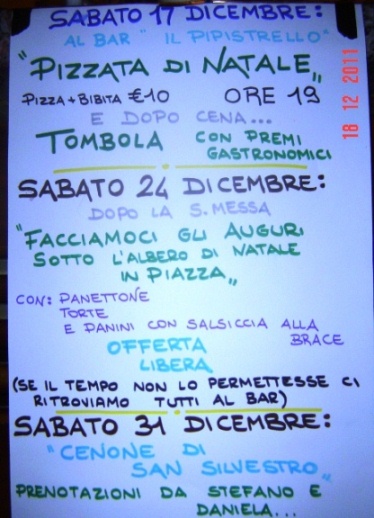 SABATO 17 DICEMBRE:
AL BAR "IL PIPISTRELLO"
"PIZZATA DI NATALE"
PIZZA + BIBITA €10 ORE 19
E DOPO CENA...
TOMBOLA CON PREMI
GASTRONOMICI
SABATO 24 DICEMBRE:
DOPO LA S. MESSA
"FACCIAMOCI GLI AUGURI
SOTTO L'ALBERO DI NATALE
IN PIAZZA"
CON: PANETTONE
TORTE
E PANINI CON SALSICCIA ALLA
BRACE
OFFERTA
LIBERA
(SE IL TEMPO NON LO PERMETTESSE CI
RITROVIAMO TUTTI AL BAR)
SABATO 31 DICEMBRE:
"CENONE DI
SAN SILVESTRO"
PRENOTAZIONI DA STEFANO E
DANIELA...
18 12 2011